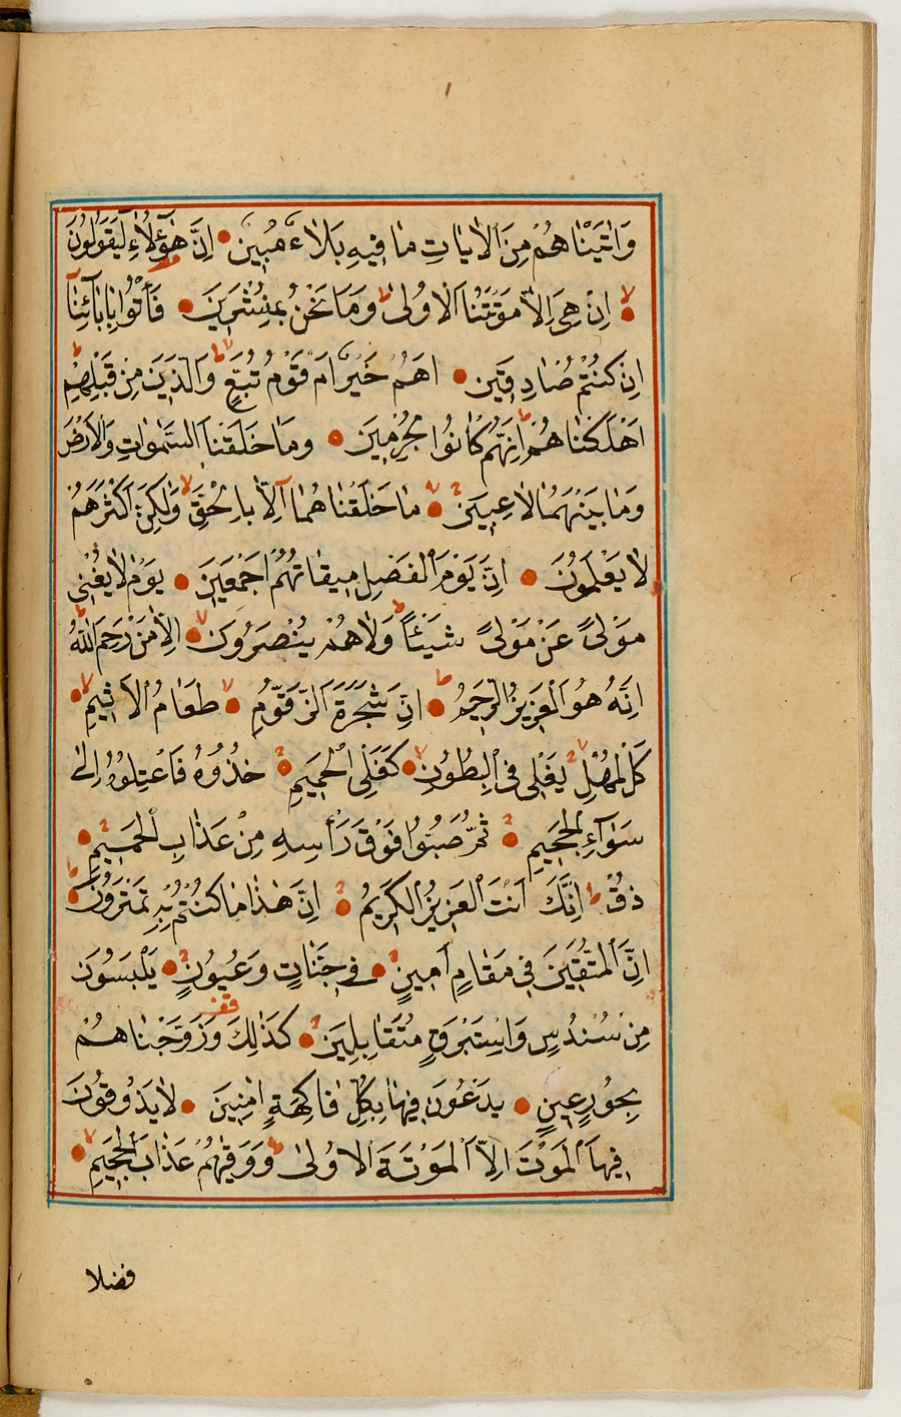 وَاٰتَيْنَاهُمْ مِنَ الْاٰيَاتِ مَا فِيهِ بَلَاءٌ مُبِينٌ اِنَّ هٰٓؤُلَاءِ لَيَقُولُونَ
اِنْ هِيَ اِلَّا مَوْتَتُنَا الْاُولٰى وَمَا نَحْنُ بِمُنْشَرِينَ فَأْتُوا بِاٰبَائِنَا
اِنْ كُنْتُمْ صَادِقِينَ اَهُمْ خَيْرٌ اَمْ قَوْمُ تُبَّعٍ وَالَّذِينَ مِنْ قَبْلِهِمْ
اَهْلَكْنَاهُمْ اِنَّهُمْ كَانُوا مُجْرِمِينَ وَمَا خَلَقْنَا السَّمٰوَاتِ وَالْاَرْضَ
وَمَا بَيْنَهُمَا لَاعِبِينَ مَا خَلَقْنَاهُمَا اِلَّا بِالْحَقِّ وَلٰكِنَّ اَكْثَرَهُمْ
لَا يَعْلَمُونَ اِنَّ يَوْمَ الْفَصْلِ مِيقَاتُهُمْ اَجْمَعِينَ يَوْمَ لَا يُغْنِى
مَوْلًى عَنْ مَوْلًى شَيْئًا وَلَا هُمْ يُنْصَرُونَ اِلَّا مَنْ رَحِمَ اللّٰهُ
اِنَّهُ هُوَ الْعَزِيزُ الرَّحِيمُ اِنَّ شَجَرَةَ الزَّقُّومِ طَعَامُ الْاَثِيمِ
كَالْمُهْلِ يَغْلِى فِى الْبُطُونِ كَغَلْىِ الْحَمِيمِ خُذُوهُ فَاعْتِلُوهُ اِلٰى
سَوَاءِ الْجَحِيمِ ثُمَّ صُبُّوا فَوْقَ رَأْسِهِ مِنْ عَذَابِ الْحَمِيمِ
ذُقْ اِنَّكَ اَنْتَ الْعَزِيزُ الْكَرِيمُ اِنَّ هٰذَا مَا كُنْتُمْ بِهِ تَمْتَرُونَ
اِنَّ الْمُتَّقِينَ فِى مَقَامٍ اَمِينٍ فِى جَنَّاتٍ وَعُيُونٍ يَلْبَسُونَ
مِنْ سُنْدُسٍ وَاِسْتَبْرَقٍ مُتَقَابِلِينَ كَذٰلِكَ وَزَوَّجْنَاهُمْ
بِحُورٍ عِينٍ يَدْعُونَ فِيهَا بِكُلِّ فَاكِهَةٍ اٰمِنِينَ لَا يَذُوقُونَ
فِيهَا الْمَوْتَ اِلَّا الْمَوْتَةَ الْاُولٰى وَوَقٰيهُمْ عَذَابَ الْجَحِيمِ
فضلا